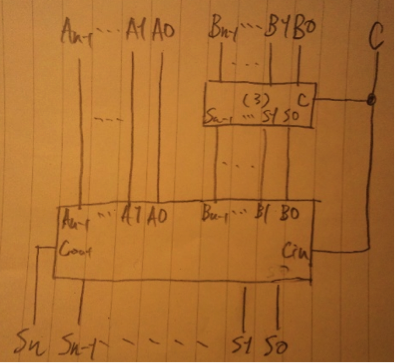 An-1 ··· A1 A0 Bn-1 ··· B1 B0 C
···
(3) C
Sn-1 ··· S1 S0
··· ···
An-1 ··· A1 A0 Bn-1 ··· B1 B0
Cout Cin
Sn Sn-1 - - - - - - S1 S0